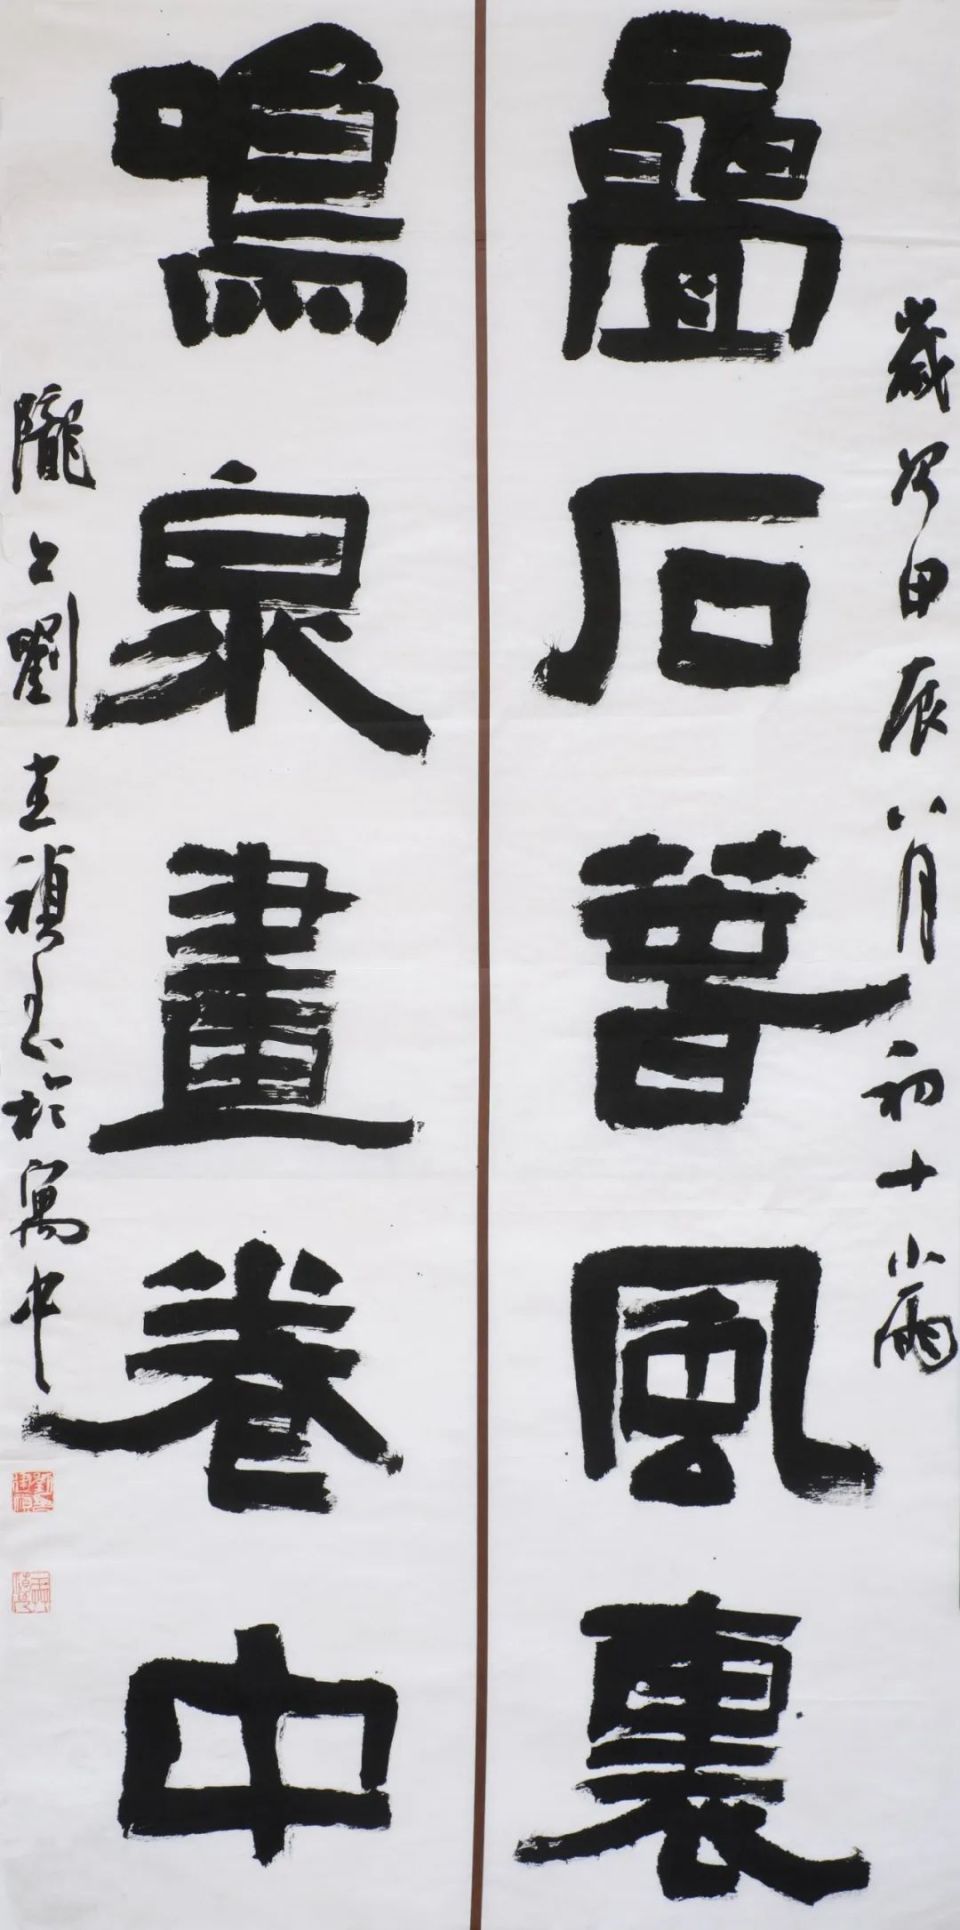 歲次甲辰八月初十小雨
疊石萅風裏
鳴泉畫卷中
隴上劉建禎書於寓中